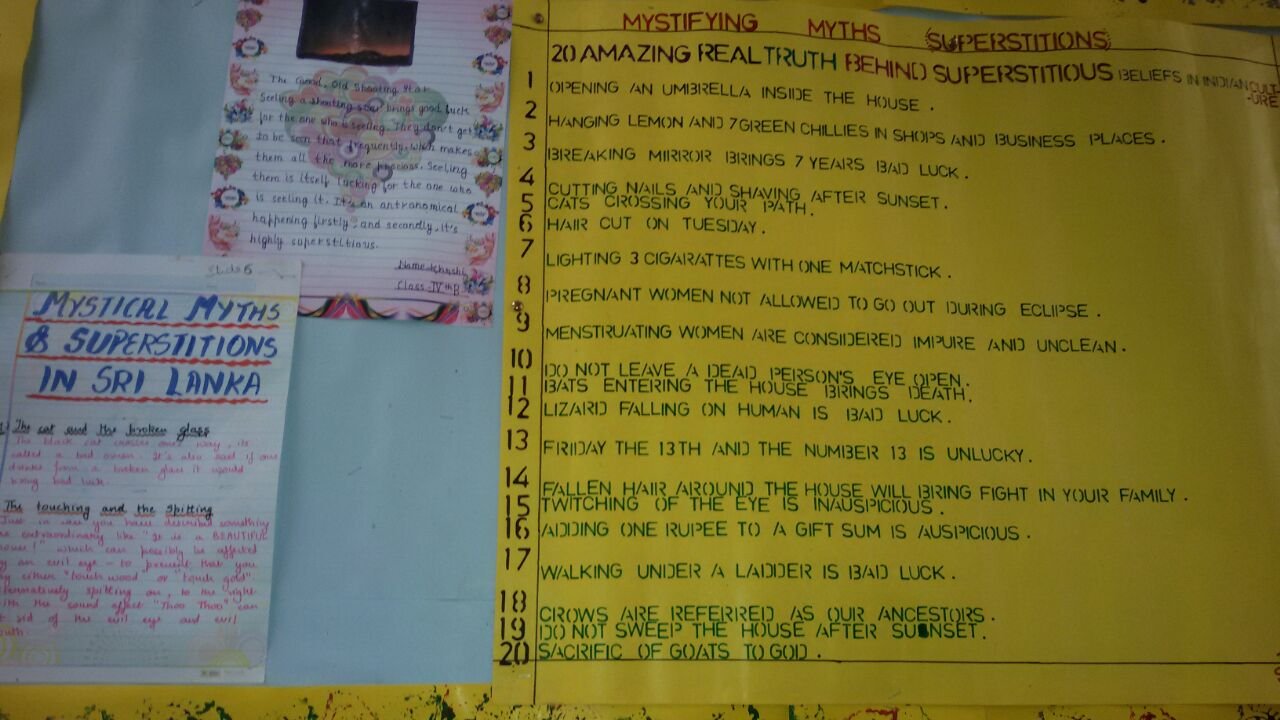 The Grand, Old Shooting Star
Seeling a shooting star brings good luck
for the one who is seeling. They don't get
to be seen that frequently, which makes
them all the more precious. Seeling
them is itself lucking for the one who
is seeling it. It's an antronomical
happening firstly, and secondly, it's
highly superstitious.
Name-Khushi
Class-IVth B
Slide 6
MYSTICAL MYTHS
& SUPERSTITIONS
IN SRI LANKA
The cat and the broken glass
The black cat crosses ones way, its
called a bad omen. It's also said if one
drinks from a broken glass it would
bring bad luck.
The touching and the spitting
Just in case you have described something
extraordinary like "It is a BEAUTIFUL
house!" which can possibly be affected
an evil eye - to prevent that you
either "touch wood" or "touch gold".
spitting on, to the right
with the sound effect "Thoo Thoo" can
rid of the evil eye and evil
mouth.
MYSTIFYING MYTHS SUPERSTITIONS
20 AMAZING REAL TRUTH BEHIND SUPERSTITIOUS BELIEFS IN INDIAN CULT-
-URE
1 OPENING AN UMBRELLA INSIDE THE HOUSE.
2 HANGING LEMON AND 7 GREEN CHILLIES IN SHOPS AND BUSINESS PLACES.
3 BREAKING MIRROR BRINGS 7 YEARS BAD LUCK.
4 CUTTING NAILS AND SHAVING AFTER SUNSET.
5 CATS CROSSING YOUR PATH.
6 HAIR CUT ON TUESDAY.
7 LIGHTING 3 CIGARATTES WITH ONE MATCHSTICK.
8 PREGNANT WOMEN NOT ALLOWED TO GO OUT DURING ECLIPSE.
9 MENSTRUATING WOMEN ARE CONSIDERED IMPURE AND UNCLEAN.
10 DO NOT LEAVE A DEAD PERSON'S EYE OPEN.
11 BATS ENTERING THE HOUSE BRINGS DEATH.
12 LIZARD FALLING ON HUMAN IS BAD LUCK.
13 FRIDAY THE 13TH AND THE NUMBER 13 IS UNLUCKY.
14 FALLEN HAIR AROUND THE HOUSE WILL BRING FIGHT IN YOUR FAMILY.
15 TWITCHING OF THE EYE IS INAUSPICIOUS.
16 ADDING ONE RUPEE TO A GIFT SUM IS AUSPICIOUS.
17 WALKING UNDER A LADDER IS BAD LUCK.
18 CROWS ARE REFERRED AS OUR ANCESTORS.
19 DO NOT SWEEP THE HOUSE AFTER SUNSET.
20 SACRIFIC OF GOATS TO GOD.